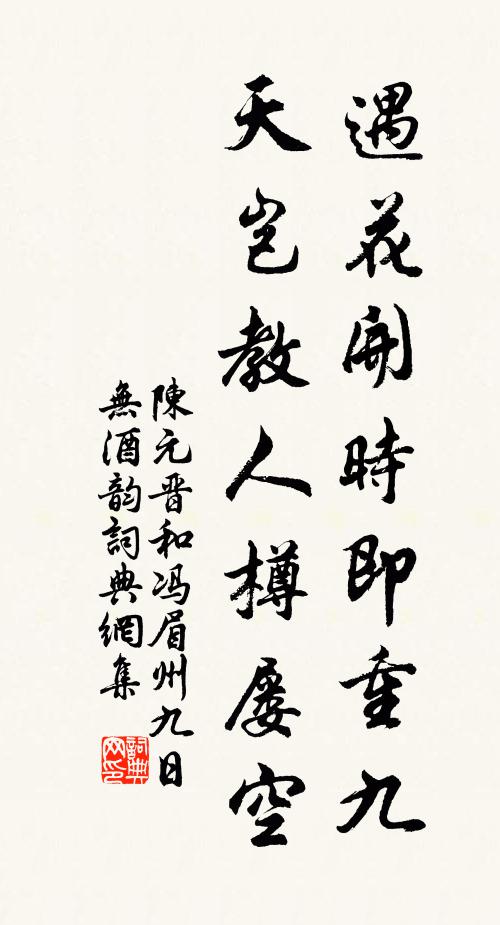 遇花開時即重九
天豈教人樽屢空
陳元晋和冯眉州九日
無酒韵詞典網集
詞典
网印